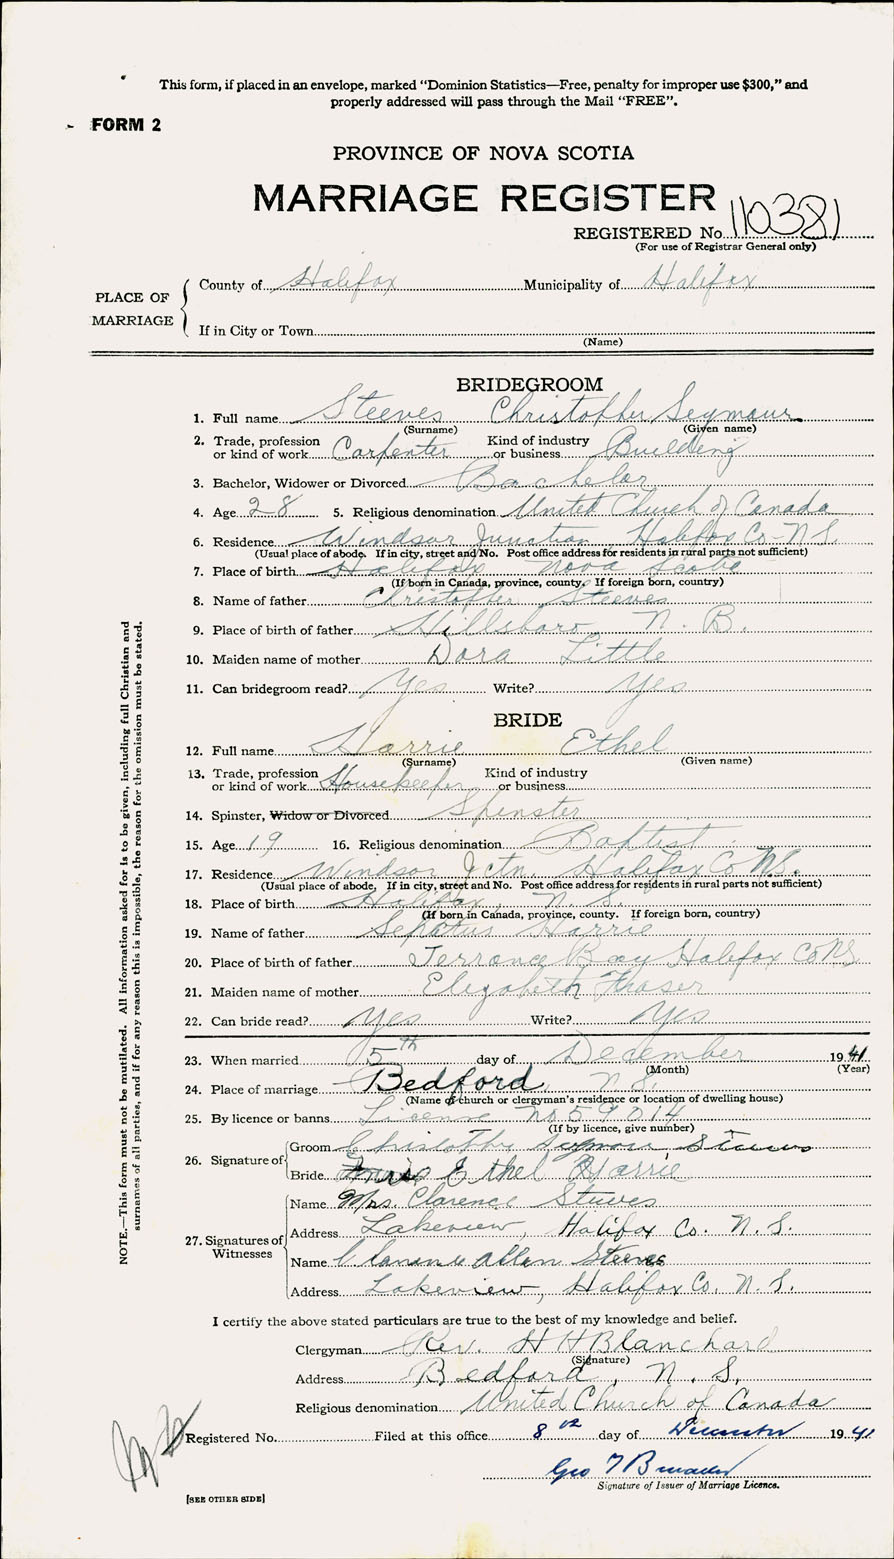 This form, if placed in an envelope, marked “Dominion Statistics—Free, penalty for improper use $300,” and
properly addressed will pass through the Mail “FREE”.
FORM 2
PROVINCE OF NOVA SCOTIA
MARRIAGE REGISTER
REGISTERED No. 110381
(For use of Registrar General only)
PLACE OF MARRIAGE
County of Halifax Municipality of Halifax
If in City or Town
(Name)
BRIDEGROOM
1. Full name Steeves Christopher Seymour
(Surname) (Given name)
2. Trade, profession or kind of work Carpenter Kind of industry or business Building
3. Bachelor, Widower or Divorced Bachelor
4. Age 28 5. Religious denomination United Church of Canada
6. Residence Windsor Junction, Halifax Co. N.S.
(Usual place of abode. If in city, street and No. Post office address for residents in rural parts not sufficient)
7. Place of birth Halifax Nova Scotia
(If born in Canada, province, county. If foreign born, country)
8. Name of father Christopher Steeves
9. Place of birth of father Hillsboro, N. B.
10. Maiden name of mother Dora Little
11. Can bridegroom read? Yes Write? Yes
BRIDE
12. Full name Harrie Ethel
(Surname) (Given name)
13. Trade, profession or kind of work Housekeeper Kind of industry or business
14. Spinster, Widow or Divorced Spinster
15. Age 19 16. Religious denomination Baptist
17. Residence Windsor Jctn. Halifax Co N.S.
(Usual place of abode, If in city, street and No. Post office address for residents in rural parts not sufficient)
18. Place of birth Halifax, N. S.
(If born in Canada, province, county. If foreign born, country)
19. Name of father Harrie
20. Place of birth of father Terrance Bay Halifax Co NS
21. Maiden name of mother Elizabeth Fraser
22. Can bride read? Yes Write? Yes
23. When married 5th day of December 1941
(Month) (Year)
24. Place of marriage Bedford N.S.
(Name of church or clergyman’s residence or location of dwelling house)
25. By licence or banns License No 59014
(If by licence, give number)
26. Signature of
Groom Christopher Seymour Steeves
Bride Ethel Harrie
27. Signatures of Witnesses
Name Mrs. Clarence Steeves
Address Lakeview, Halifax Co. N. S.
Name Clarence Allen Steeves
Address Lakeview, Halifax Co. N. S.
I certify the above stated particulars are true to the best of my knowledge and belief.
Clergyman Rev. H H Blanchard
(Signature)
Address Bedford, N. S.
Religious denomination United Church of Canada
Registered No. Filed at this office 8th day of December 1941
Geo T
Signature of Issuer of Marriage Licence.
[SEE OTHER SIDE]
NOTE.—This form must not be mutilated. All information asked for is to be given, including full Christian and
surnames of all parties, and if for any reason this is impossible, the reason for the omission must be stated.